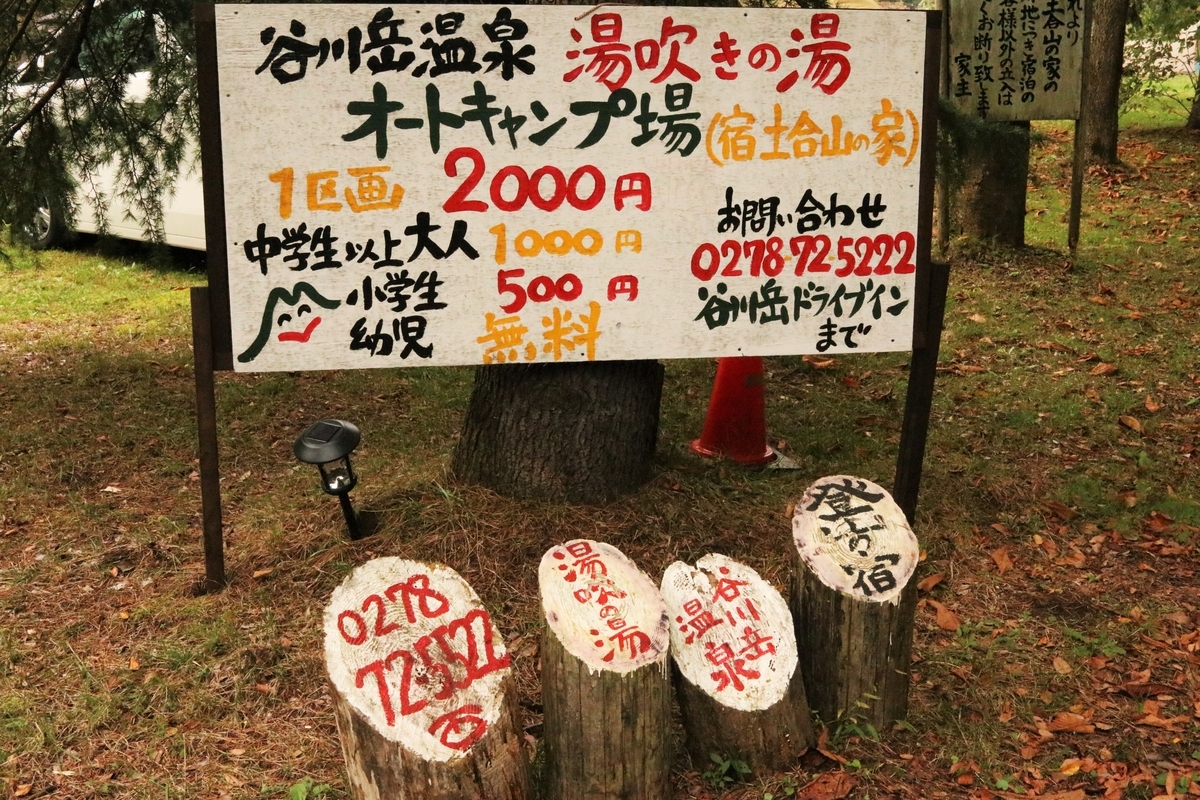 谷川岳温泉 湯吹きの湯
オートキャンプ場(宿土合山の家)
1区画 2000円
中学生以上大人 1000円
小学生 500円
幼児 無料
お問い合わせ
0278-72-5222
谷川岳ドライブイン
まで
れより
土合山の家の
地につき宿泊の
客様以外の立入は
くお断り致します
家主
0278
725522
湯吹の湯
谷川岳
温泉
登
宿